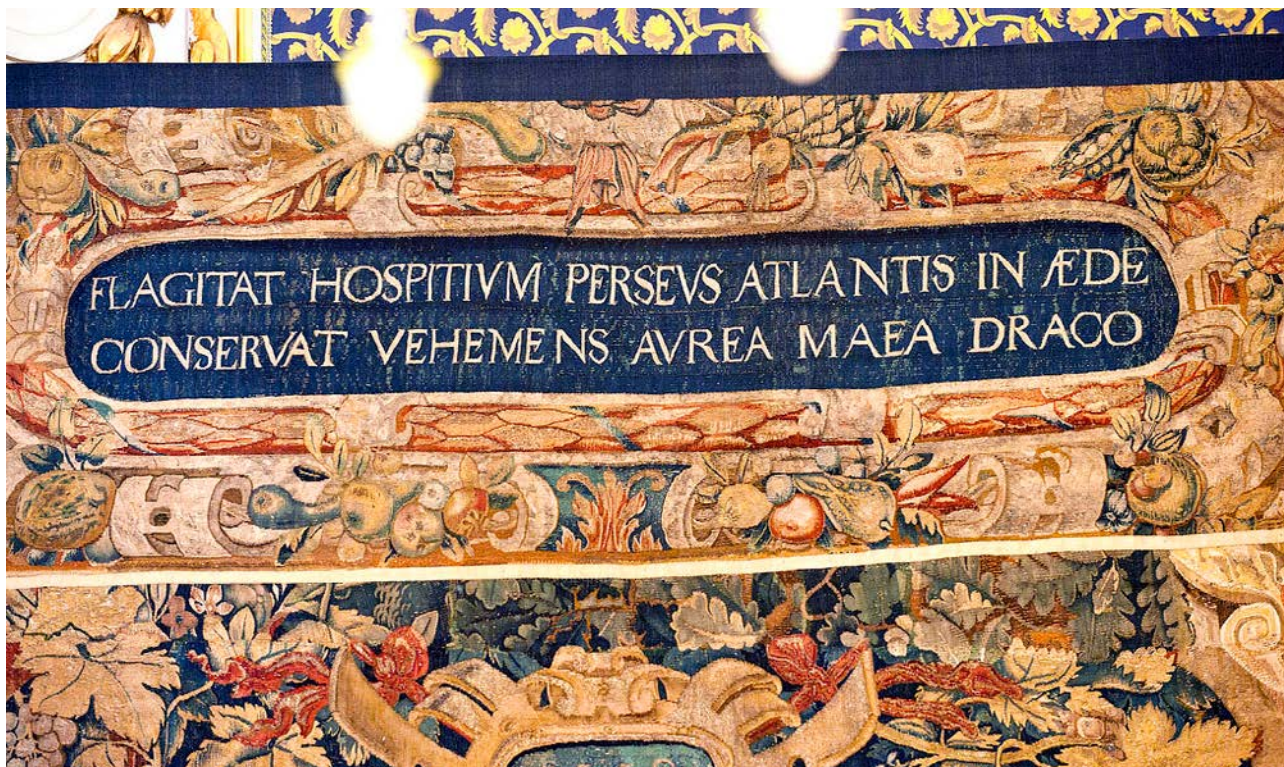 FLAGITAT HOSPITIVM PERSEVS ATLANTIS IN ÆDE
CONSERVAT VEHEMENS AVREA MAEA DRACO